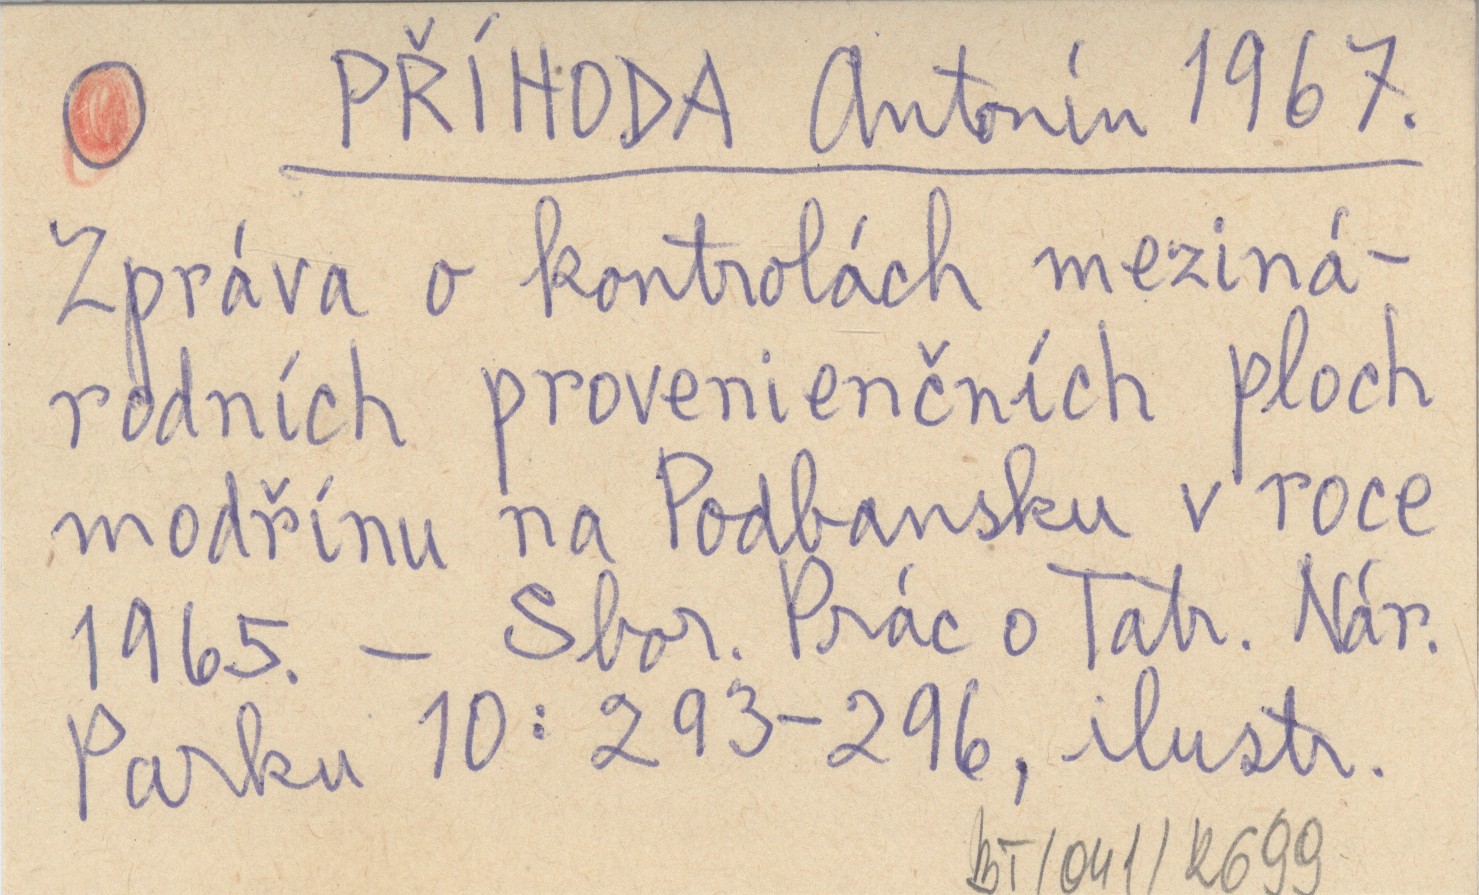 PŘÍHODA Antonín 1967.
Zpráva o kontrolách meziná-
rodních provenienčních ploch
modřínu na Podbansku v roce
1965. – Sbor. Prác o Tatr. Nár.
Parku 10: 293–296, ilustr.
BT/041/2699